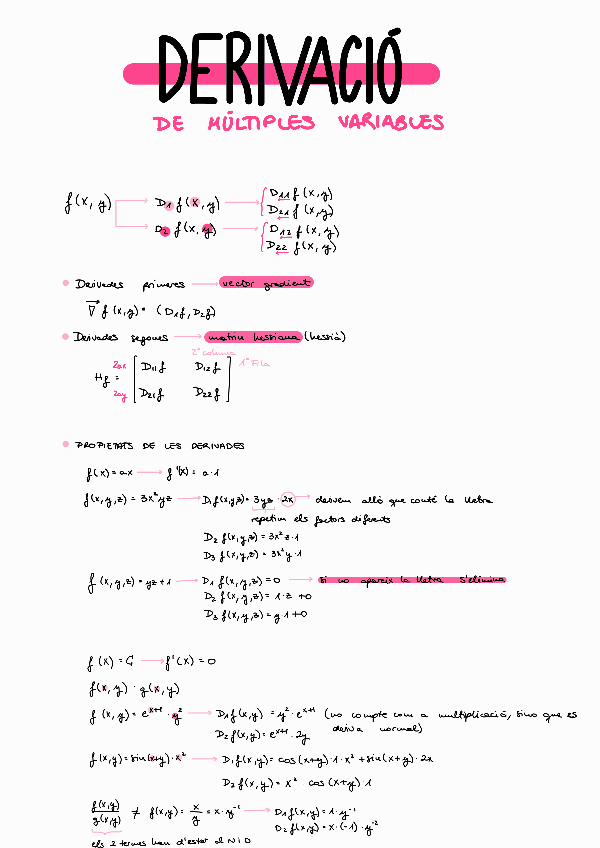 DERIVACIÓ
DE MÚLTIPLES VARIABLES
f(x,y) → D1 f(x,y) → { D11 f(x,y)
D21 f(x,y)
→ D2 f(x,y) → { D12 f(x,y)
D22 f(x,y)
• Derivades primeres → vector gradient
∇ f(x,y) = (D1f, D2f)
• Derivades segones → matriu hessiana (hessià)
2ª columna
Hf = [ D11f D12f ] 1ª Fila
D21f D22f
• PROPIETATS DE LES DERIVADES
f(x) = ax → f'(x) = a·1
f(x,y,z) = 3x²yz → D1f(x,y,z) = 3yz · 2x → derivem allò que conté la lletra
repetim els factors diferents
D2 f(x,y,z) = 3x²z·1
D3 f(x,y,z) = 3x²y·1
f(x,y,z) = yz+1 → D1 f(x,y,z) = 0 → si no apareix la lletra s'elimina
D2 f(x,y,z) = 1·z +0
D3 f(x,y,z) = y·1+0
f(x) = C → f'(x) = 0
f(x,y) · g(x,y)
f(x,y) = e^x+1 · y² → D1f(x,y) = y² · e^x+1 (no compte com a multiplicació, sino que es
D2f(x,y) = e^x+1 · 2y deriva normal)
f(x,y) = sin(x+y)·x² → D1f(x,y) = cos(x+y)·1·x² + sin(x+y)·2x
D2f(x,y) = x² · cos(x+y)·1
f(x,y)/g(x,y) ≠ f(x,y) = x/y = x·y⁻¹ → D1f(x,y) = 1·y⁻¹
D2f(x,y) = x·(-1)·y⁻²
els 2 termes han d'estar al N i D